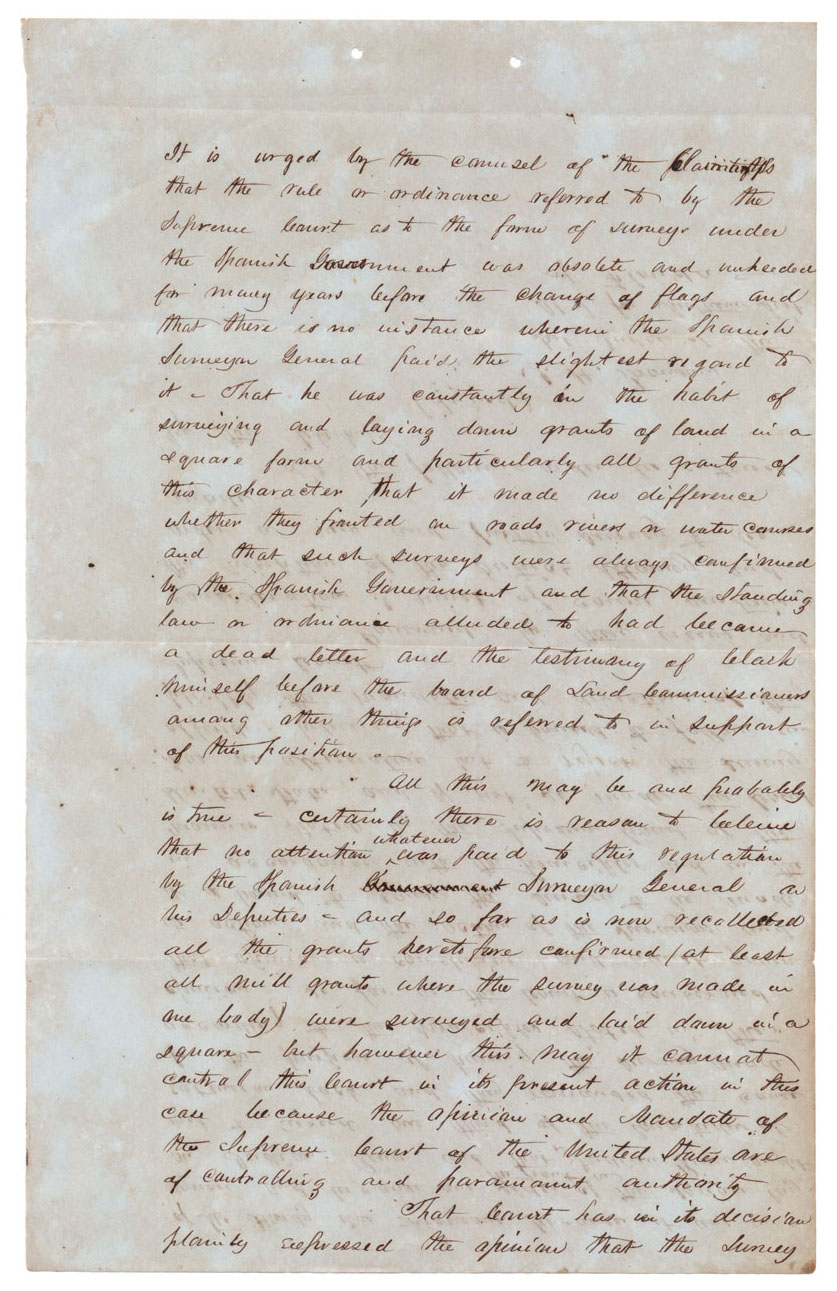 It is urged by the counsel of the Plaintiffs
that the rule or ordinance referred to by the
Supreme Court as to the form of surveys under
the Spanish Government was obsolete and unheeded
for many years before the change of flags and
that there is no instance wherein the Spanish
Surveyor General paid the slightest regard to
it - That he was constantly in the habit of
surveying and laying down grants of land in a
square form and particularly all grants of
this character, that it made no difference
whether they fronted on roads rivers or water courses
and that such surveys were always confirmed
by the Spanish Government and that the standing
law or ordinance alluded to had become
a dead letter and the testimony of Clark
himself before the board of Land Commissioners
among other things is referred to in support
of this position -
All this may be and probably
is true - certainly there is reason to beleive
that no attention whatever was paid to this regulation
by the Spanish Government Surveyor General or
his Deputies - and so far as is now recollected
all the grants heretofore confirmed (at least
all mill grants where the survey was made in
one body) were surveyed and laid down in a
square - but however this may it cannot
control this Court in its present action in this
case because the opinion and Mandate of
the Supreme Court of the United States are
of controlling and paramount authority
That Court has in its decision
plainly expressed the opinion that the Survey